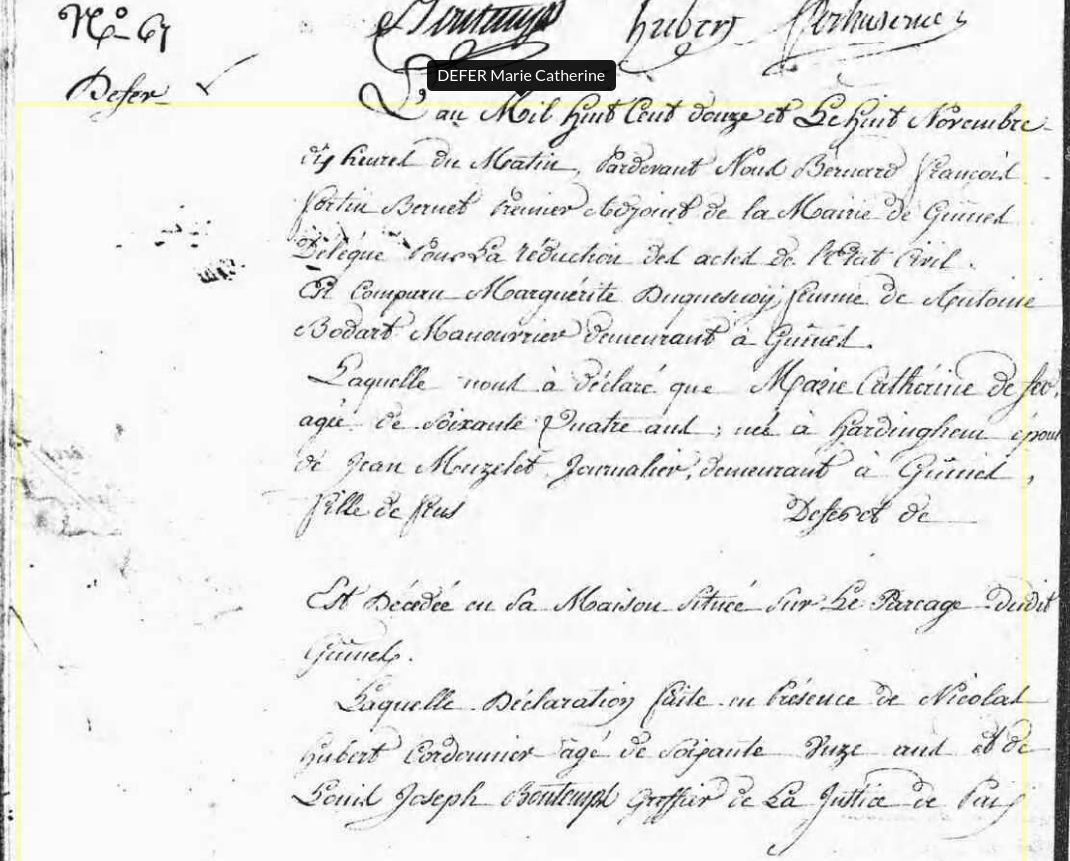 N.o 67
Bontemps hubert
Defer
DEFER Marie Catherine
L'an Mil huit Cent douze et Le huit Novembre
dix heures du Matin, Pardevant Nous Bernard françois
fortin Bernet Premier Adjoint de la Mairie de Guines
Délégué Pour La rédaction des actes de l'Etat Civil.
Est Comparu Marguérite Duquesnoy femme de Antoine
Bodart Manouvrier demeurant à Guines.
Laquelle nous à déclaré que Marie Catherine de fer,
agée de Soixante Quatre ans ; née à hardinghem épouse
de Jean Muzelet Journalier, demeurant à Guines,
fille de feus Defer et de
Est Décédée en Sa Maison Située Sur Le Parcage dudit
Guines.
Laquelle Déclaration faite en Présence de Nicolas
hubert Cordonnier âgé de Soixante Onze ans et de
Louis Joseph Bontemps Greffier de La Justice de Paix